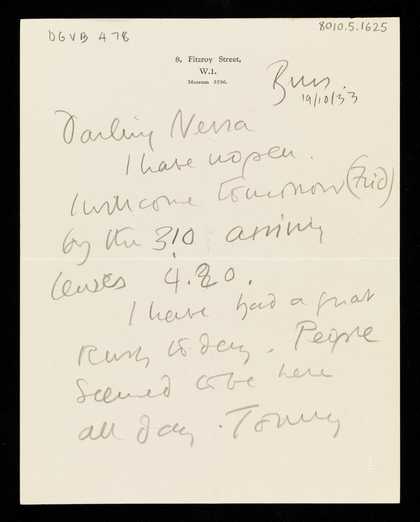 DGVB A 78
8010.5.1625
8, Fitzroy Street,
W.1.
Museum
19/10/33
Darling Nessa
I have no pen.
I will come tomorrow (Frid)
by the 3.10 arriving
Lewes 4.20.
I have had a great
Rush to day. People
seemed to be here
all day.